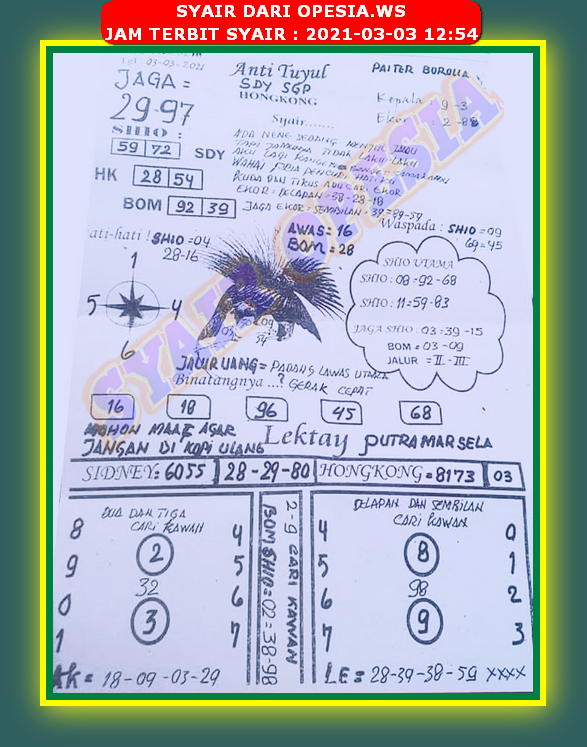 SYAIR DARI OPESIA.WS
JAM TERBIT SYAIR : 2021-03-03 12:54
Tgl 03-03-2021
JAGA =
29-97
SHIO :
59 72
Anti Tuyul
SDY SGP
HONGKONG
Syair.......
PAITER BOROLLA
Kepala : 9-3
Ekor : 2-88
SDY
ADA NENG SEDANG
TAPI TIDAK LAKU-LAKU
AKU LAGI KANGEN
WAHAI PRIA PENCURI HATI KU
KUDA DAN TIKUS ADU CARI EKOR
EKOR = DELAPAN = 38-28-18
JAGA EKOR = SEMBILAN = 39-89-59
HK 28 54
BOM 92 39
ati-hati ! SHIO = 04
28-16
AWAS = 16
BOM = 28
Waspada : SHIO = 09
69 = 45
1
5 4
6
SHIO UTAMA
SHIO : 08 = 92-68
SHIO : 11 = 59-83
JAGA SHIO : 03 = 39-15
BOM = 03-09
JALUR = II - III
SYAIR OPESIA
JALUR UANG = PADANG LAWAS UTARA
Binatangnya ...? GERAK CEPAT
16 18 96 45 68
MOHON MAAF AGAR
JANGAN DI KOPI ULANG
Lektay PUTRA MARSELA
SIDNEY: 6055 28-29-80 HONGKONG = 8173 03
DUA DAN TIGA
CARI KAWAN
8 9 0 1
2
32
3
4 5 6 7
2-9 CARI KAWAN
BOM SHIO = 02 = 38-98
DELAPAN DAN SEMBILAN
CARI KAWAN
4 5 6 7
8
98
9
0 1 2 3
AK = 18-09-03-29
LE = 28-39-38-59 XXXX